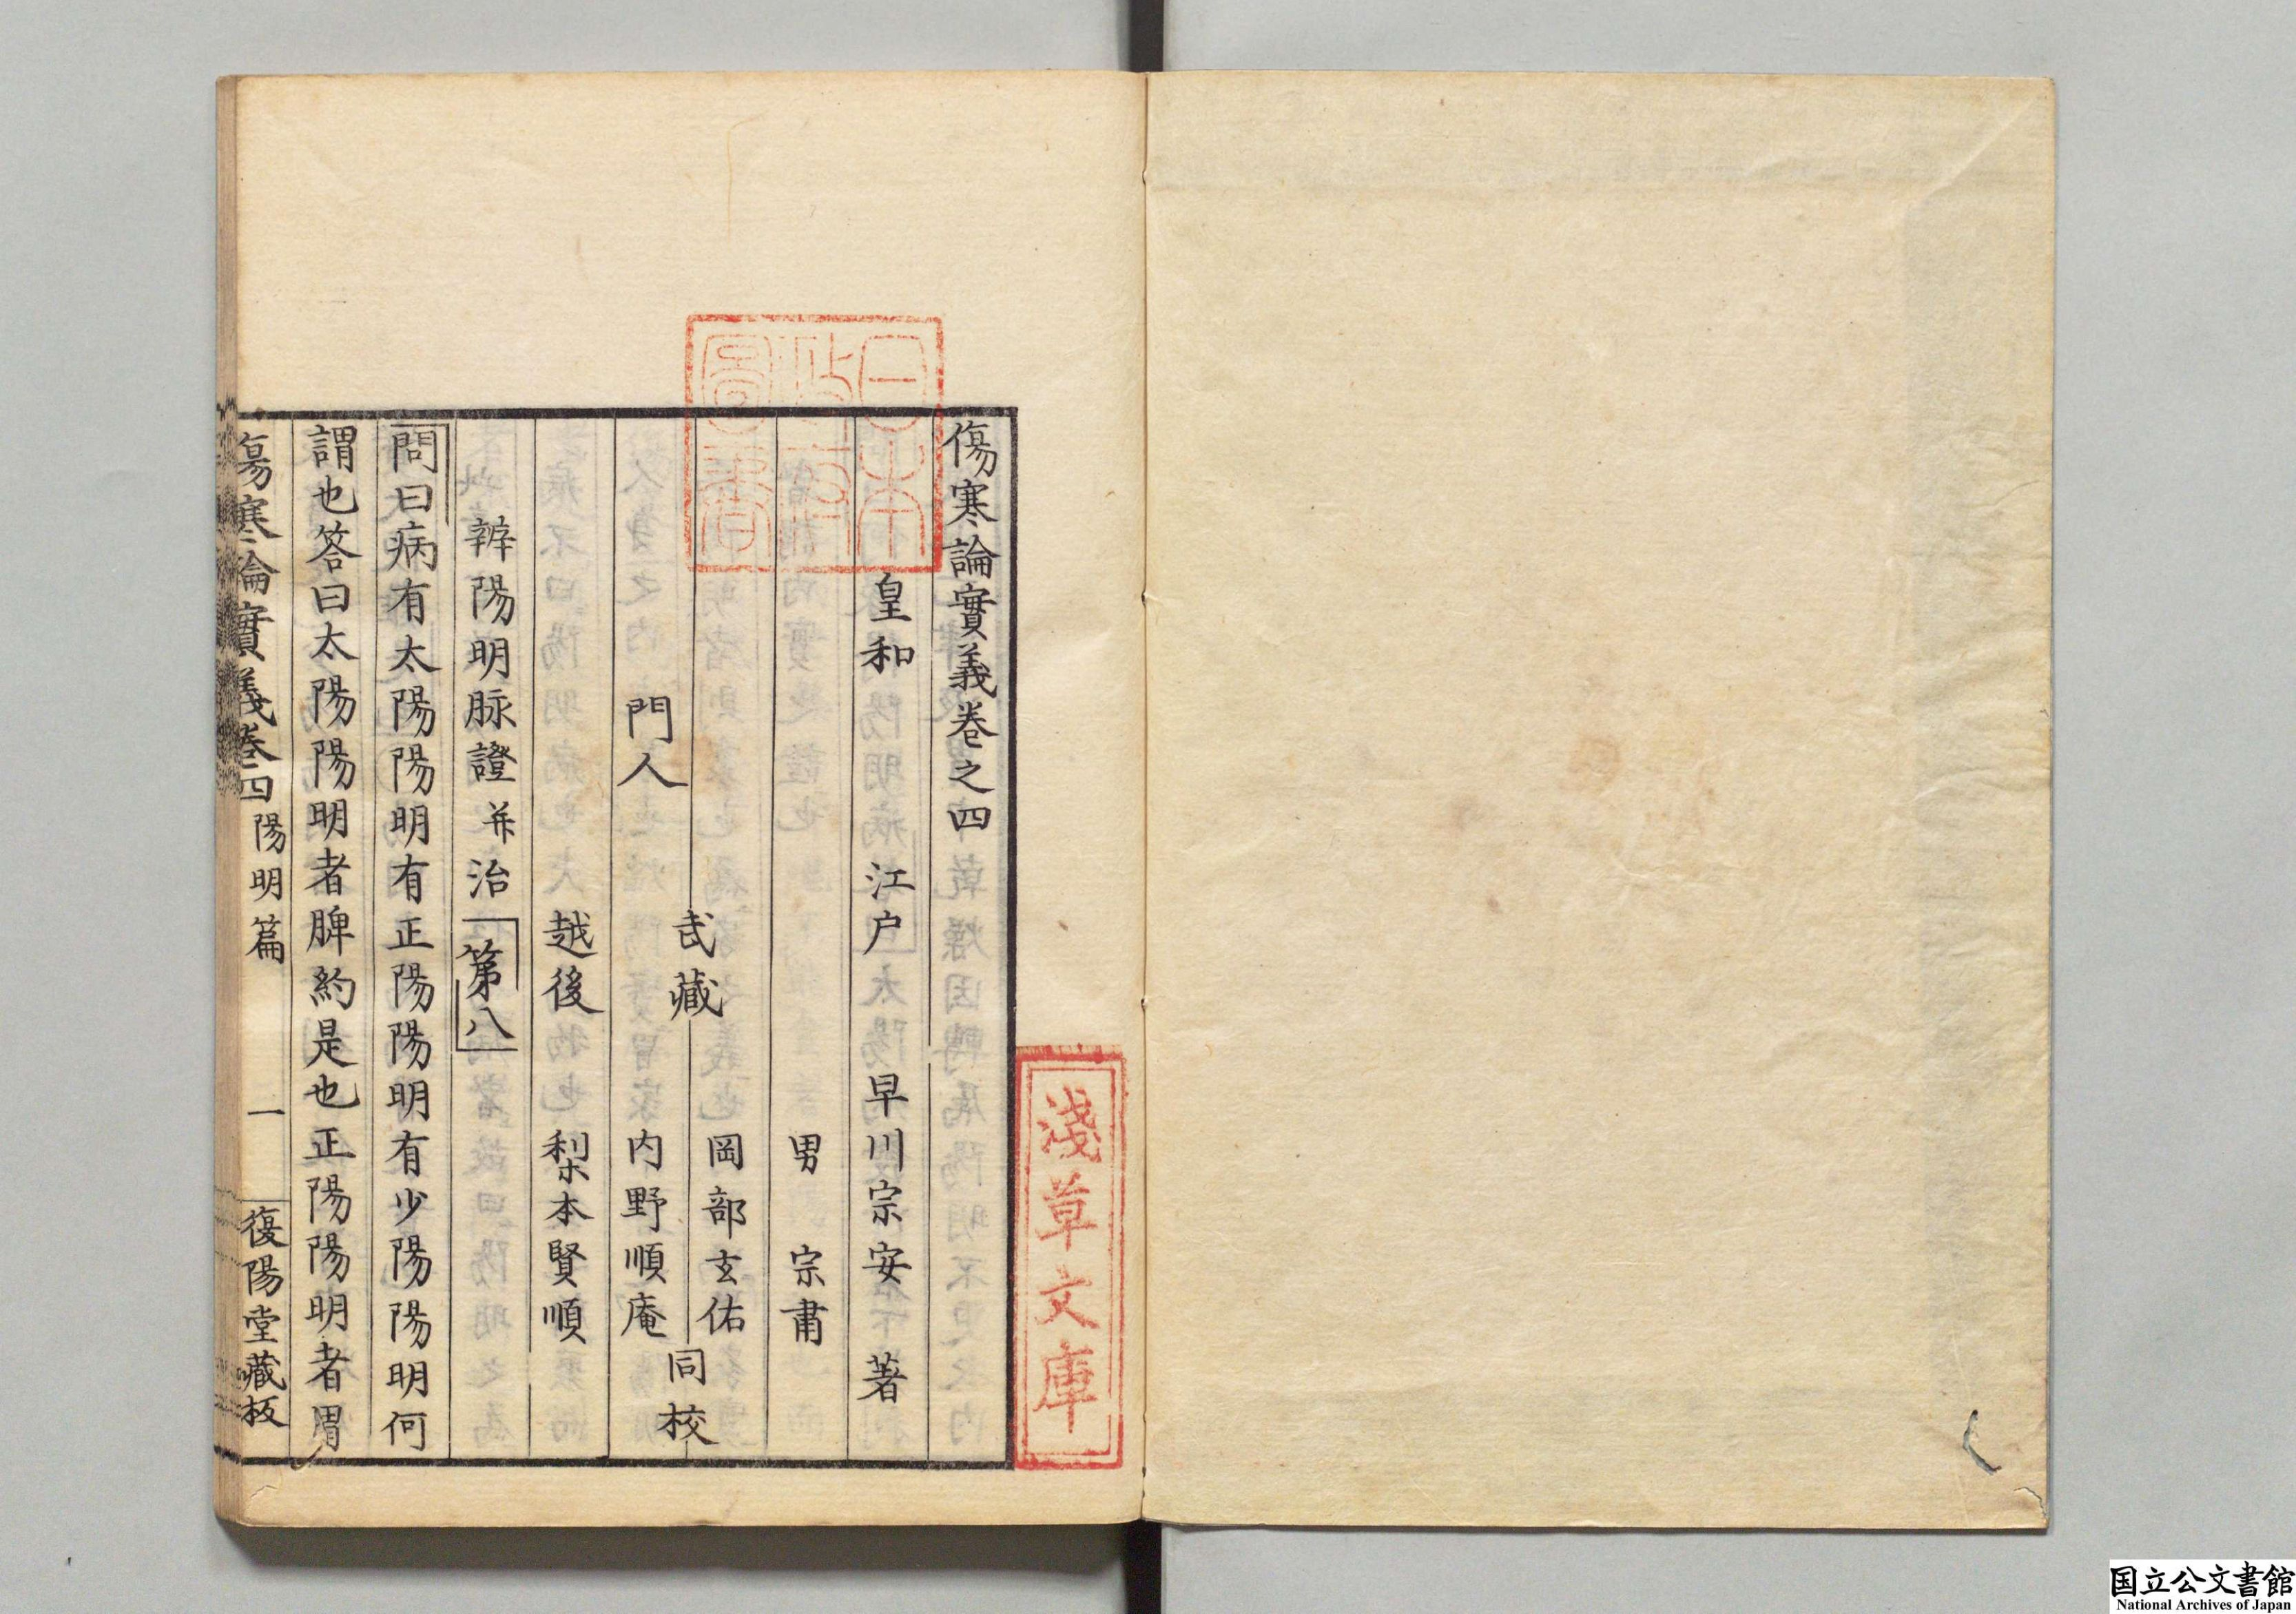 傷寒論實義卷之四
皇和 江戸 早川宗安 著
男 宗肅
岡部玄佑
門人 武藏 同校
内野順庵
越後 梨本賢順
辨陽明脉證并治第八
問曰病有太陽陽明有正陽陽明有少陽陽明何
謂也答曰太陽陽明者脾約是也正陽陽明者胃
傷寒論實義卷四 陽明篇 一 復陽堂藏板
日本
政府
圖書
淺草文庫
国立公文書館
National Archives of Japan